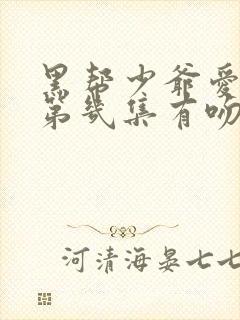 黑帮少爷爱
第几集有吻
河清海晏七七